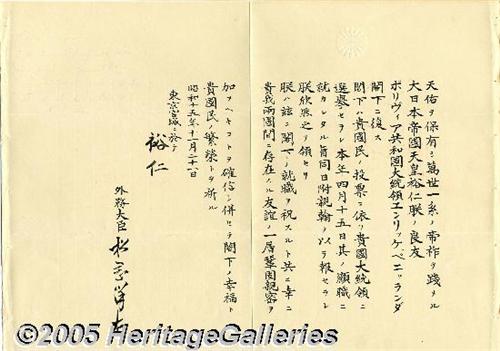 天佑ヲ保有シ萬世一系ノ帝祚ヲ踐メル
大日本帝國天皇裕仁朕ノ良友
ボリヴィア共和國大統領エンリッケ、ペニャランダ
閣下ニ復ス
閣下ハ貴國民ノ投票ニ依リ貴國大統領ニ
選擧セラレ本年四月十五日其ノ顯職ニ
就カレタル旨同日附親翰ヲ以テ報セラレ
朕欣然之ヲ領セリ
朕ハ茲ニ閣下ノ就職ヲ祝スルト共ニ幸ニ
貴我兩國間ニ存在スル友誼ノ一層鞏固親密ヲ
加フヘキコトヲ確信シ併セテ閣下ノ幸福ト
貴國民ノ繁榮トヲ祈ル
昭和十五年十一月二十一日
東京宮城ニ於テ
裕仁
外務大臣 松岡洋右
©2005 HeritageGalleries